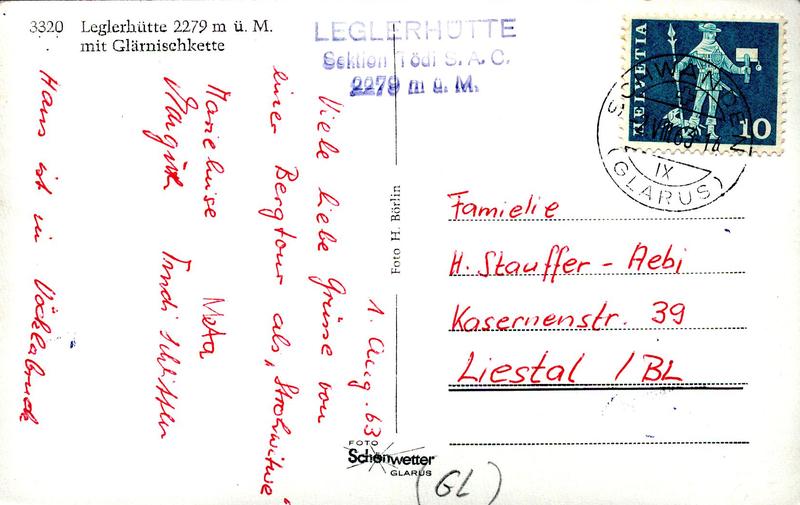 3320 Leglerhütte 2279 m ü. M.
mit Glärnischkette
LEGLERHÜTTE
Sektion Tödi S. A. C.
2279 m ü. M.
HELVETIA
10
SCHWANDEN
(GLARUS)
IX
1. Aug. 63
Viele liebe Grüsse von
einer Bergtour als „Strohwitwe“
Marieluise Meta
Margrit Trudi
Hans ist in Vöcklabruck
Foto H. Börlin
Famielie
H. Stauffer - Aebi
Kasernenstr. 39
Liestal / BL
FOTO
Schönwetter
GLARUS
(GL)